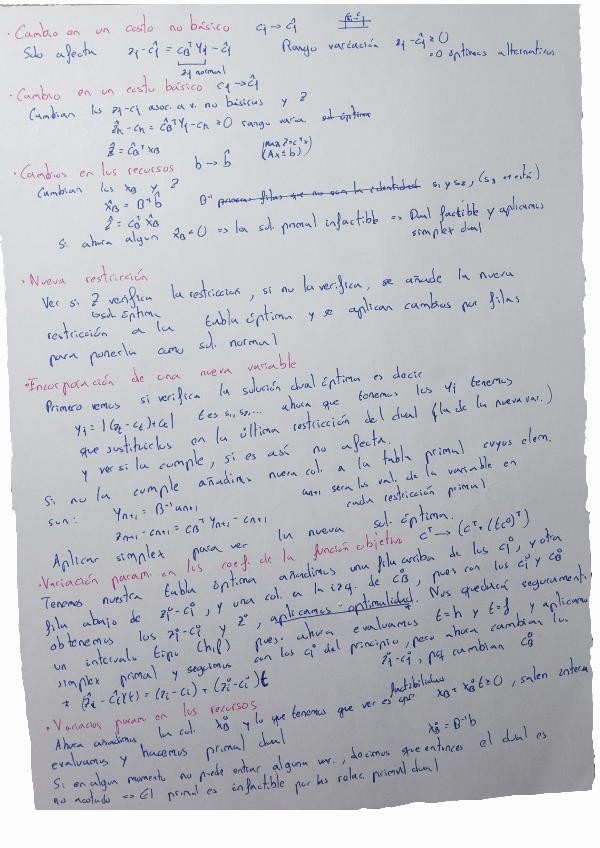 · Cambio en un costo no básico cj → ĉj
Solo afecta zj - ĉj = cBᵀ Yj - ĉj Rango variación zj - ĉj ≥ 0
zj normal = 0 óptimos alternativos
· Cambio en un costo básico cj → ĉj
Cambian los zj - cj asoc. a v. no básicas y Z
ẑn - cn = ĉBᵀ Yj - cn ≥ 0 rango varia
ẑ = ĉBᵀ xB
(max Z = cᵀx)
(Ax ≤ b)
· Cambios en los recursos b → b̂
Cambian los xB y Z
x̂B = B⁻¹ b̂ B⁻¹ s1 y s2,
ẑ = cBᵀ x̂B
Si ahora algun x̂B < 0 => la sol. primal infactible => Dual factible y aplicamos
simplex dual
· Nueva restricción
Ver si Z verifica la restriccion, si no la verifica, se añade la nueva
sol. óptima
restricción a la tabla óptima y se aplican cambios por filas
para ponerla como sol. normal
· Encorporación de una nueva variable
Primero vemos si verifica la solución dual óptima es decir
yi = |(zt - ct) + ct| t es s1, s2,... ahora que tenemos los yi tenemos
que sustituirlos en la última restricción del dual (la de la nueva var.)
y ver si la cumple, si es así no afecta.
Si no la cumple añadimos nueva col. a la tabla primal cuyos elem.
son: Yn+1 = B⁻¹ an+1 an+1 sera los val. de la variable en
zn+1 - cn+1 = cBᵀ Yn+1 - cn+1 cada restricción primal
Aplicar simplex para ver la nueva sol. óptima.
· Variación param. en los coef. de la función objetivo cᵀ → (cᵀ + (tc⁰)ᵀ)
Tenemos nuestra tabla óptima añadimos una fila arriba de los cj⁰, y otra
fila abajo de zj⁰ - cj⁰, y una col. a la izq. de cB⁰, pues con los cj⁰ y cB⁰
obtenemos los zj⁰ - cj⁰ y z⁰, aplicamos * optimalidad. Nos quedará seguramente
un intervalo tipo (h, f) pues ahora evaluamos t=h y t=f, y aplicamos
simplex primal y seguimos con los cj⁰ del principio, pero ahora cambian los
zj⁰ - cj⁰, pq cambian cB⁰
* (ẑj - ĉj)(t) = (zj - cj) + (zj⁰ - cj⁰)t
· Variacion param en los recursos
Ahora añadimos la col. xB⁰ y lo que tenemos que ver es xB + xB⁰ t ≥ 0, salen intera
factibilidad
evaluamos y hacemos primal dual xB⁰ = B⁻¹ b
Si en algun momento no puede entrar alguna var., decimos que entonces el dual es
no acotado => El primal es infactible por las relac. primal dual